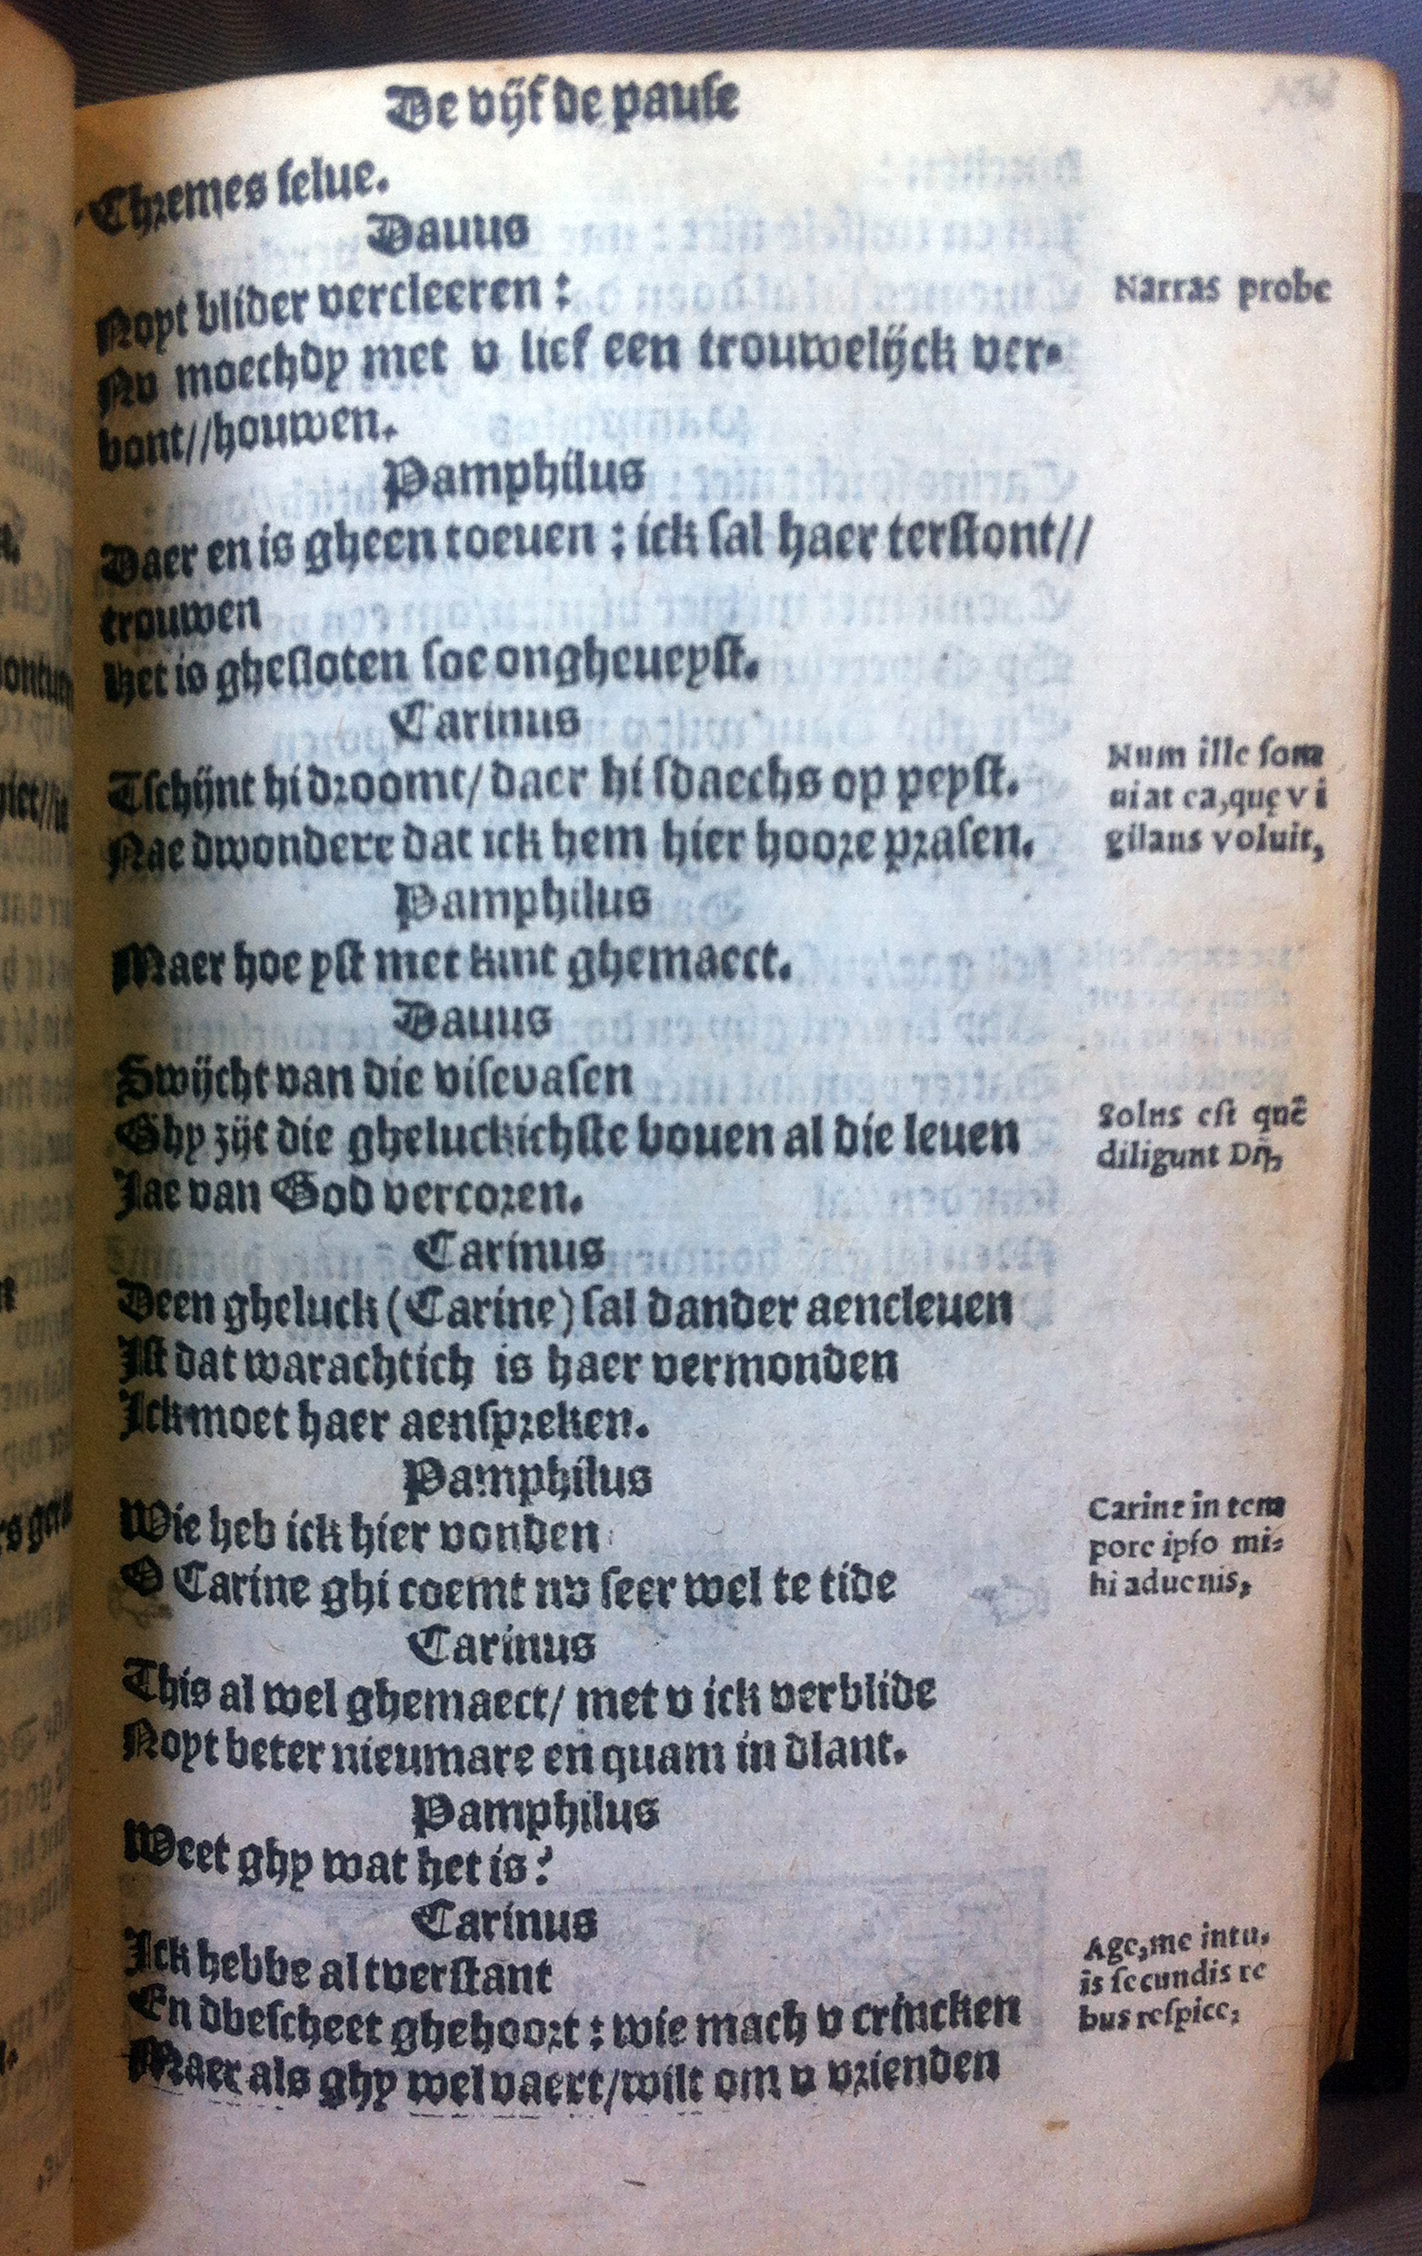 De vijfde pause
Chremes selue.
Dauus
Noyt blider vercleeren :
Nv moechdy met v lief een trouwelijck ver-
bont//houwen.
Pamphilus
Daer en is gheen toeuen : ick sal haer terstont//
trouwen
Het is ghesloten soe ongheueyst.
Carinus
Tschijnt hi droomt/ daer hi sdaechs op peyst.
Nae dwondere dat ick hem hier hoore prasen.
Pamphilus
Maer hoe yst met kint ghemaect.
Dauus
Swijcht van die visevasen
Ghy zijt die gheluckichste bouen al die leuen
Jae van God vercoren.
Carinus
Deen gheluck (Carine) sal dander aencleuen
Ist dat warachtich is haer vermonden
Ick moet haer aenspreken.
Pamphilus
Wie heb ick hier vonden
O Carine ghi coemt nv seer wel te tide
Carinus
This al wel ghemaect/ met v ick verblide
Noyt beter nieumare en quam in dlant.
Pamphilus
Weet ghy wat het is?
Carinus
Ick hebbe al tverstant
En dbescheet ghehoort : wie mach v crincken
Maer als ghy wel vaert/wilt om v vrienden
Narras probe
Num ille som
niat ea,quę vi
gilans voluit,
Solus est quẽ
diligunt Dij,
Carine in tem
pore ipso mi-
hi aduenis,
Age,me in tu.
is secundis re
bus respice,